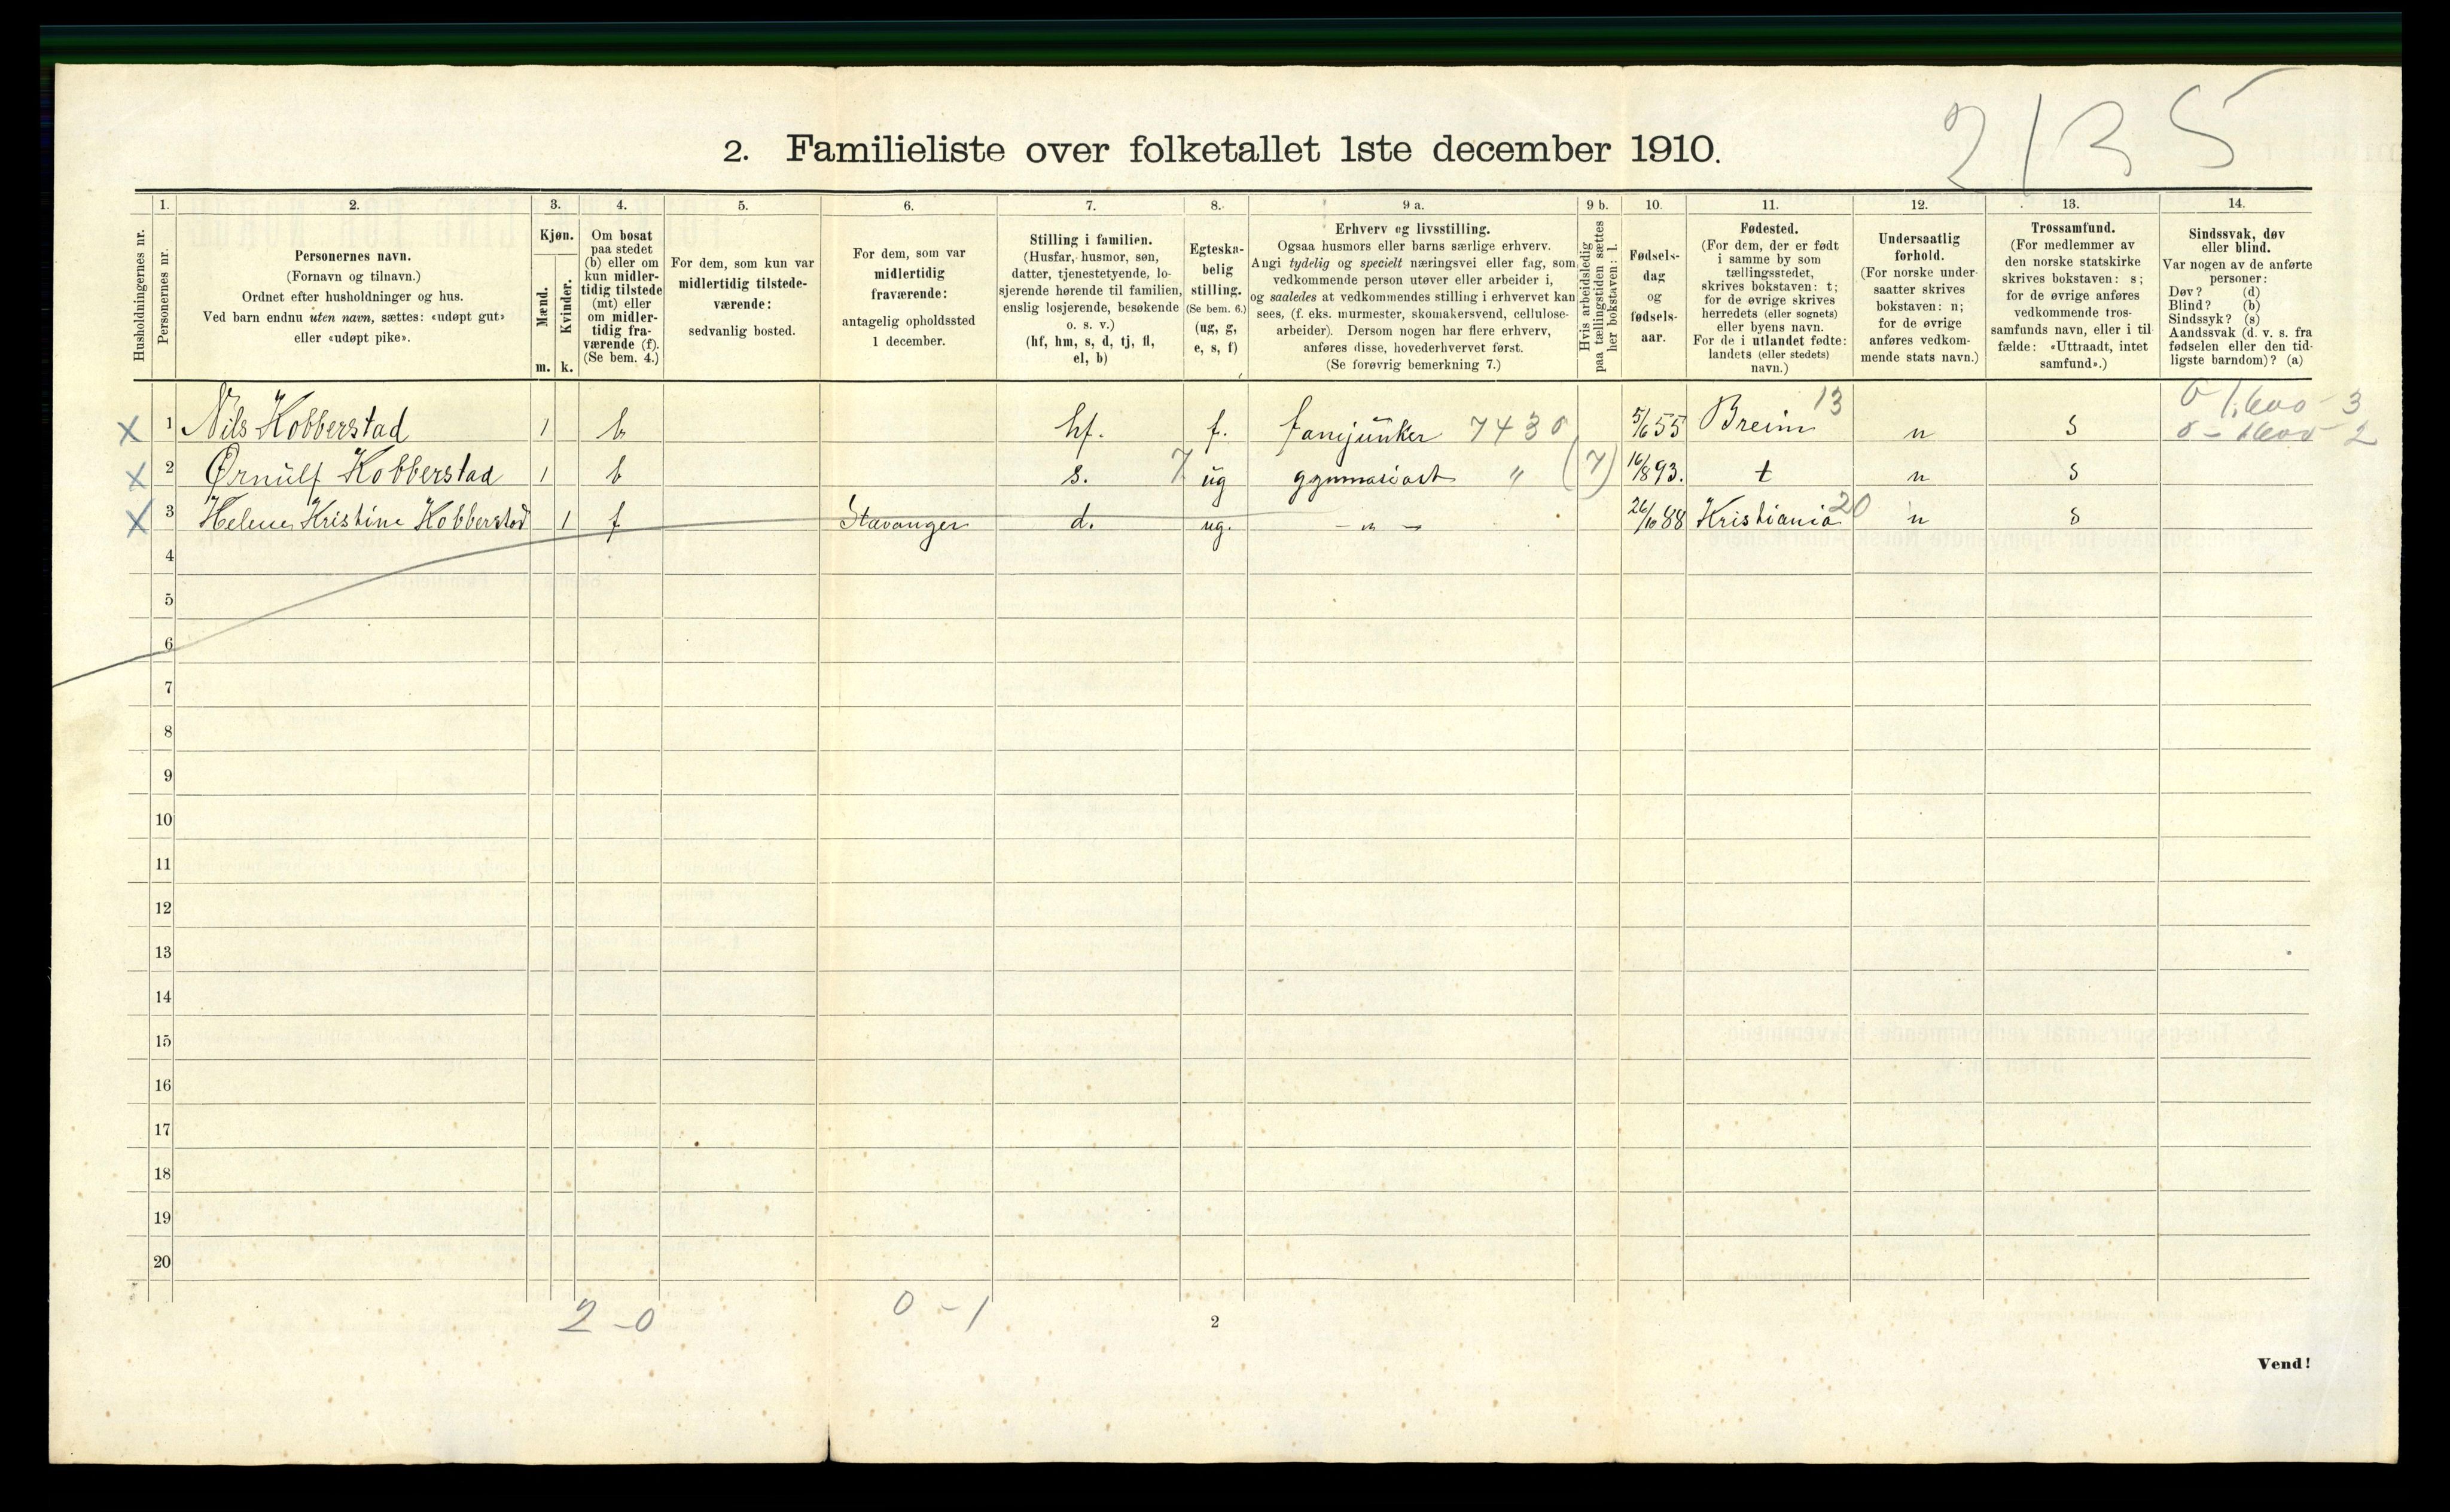 2135
2. Familieliste over folketallet 1ste december 1910.
1. 2. 3. 4. 5. 6. 7. 8. 9 a. 9 b. 10. 11. 12. 13. 14.
Husholdningernes nr.
Personernes nr.
Personernes navn.
(Fornavn og tilnavn.)
Ordnet efter husholdninger og hus.
Ved barn endnu uten navn, sættes: «udøpt gut»
eller «udøpt pike».
Kjøn.
Mænd.
Kvinder.
m. k.
Om bosat
paa stedet
(b) eller om
kun midler-
tidig tilstede
(mt) eller
om midler-
tidig fra-
værende (f).
(Se bem. 4.)
For dem, som kun var
midlertidig tilstede-
værende:
sedvanlig bosted.
For dem, som var
midlertidig
fraværende:
antagelig opholdssted
1 december.
Stilling i familien.
(Husfar, husmor, søn,
datter, tjenestetyende, lo-
sjerende hørende til familien,
enslig losjerende, besøkende
o. s. v.)
(hf, hm, s, d, tj, fl,
el, b)
Egteska-
belig
stilling.
(Se bem. 6.)
(ug, g,
e, s, f)
Erhverv og livsstilling.
Ogsaa husmors eller barns særlige erhverv.
Angi tydelig og specielt næringsvei eller fag, som
vedkommende person utøver eller arbeider i,
og saaledes at vedkommendes stilling i erhvervet kan
sees, (f. eks. murmester, skomakersvend, cellulose-
arbeider). Dersom nogen har flere erhverv,
anføres disse, hovederhvervet først.
(Se forøvrig bemerkning 7.)
Hvis arbeidsledig
paa tællingstiden sættes
her bokstaven: l.
Fødsels-
dag
og
fødsels-
aar.
Fødested.
(For dem, der er født
i samme by som
tællingsstedet,
skrives bokstaven: t;
for de øvrige skrives
herredets (eller sognets)
eller byens navn.
For de i utlandet fødte:
landets (eller stedets)
navn.)
Undersaatlig
forhold.
(For norske under-
saatter skrives
bokstaven: n;
for de øvrige
anføres vedkom-
mende stats navn.)
Trossamfund.
(For medlemmer av
den norske statskirke
skrives bokstaven: s;
for de øvrige anføres
vedkommende tros-
samfunds navn, eller i til-
fælde: «Uttraadt, intet
samfund».)
Sindssvak, døv
eller blind.
Var nogen av de anførte
personer:
Døv? (d)
Blind? (b)
Sindssyk? (s)
Aandssvak (d. v. s. fra
fødselen eller den tid-
ligste barndom)? (a)
0 - 1,600 - 3
X 1 Nils Hobberstad 1 b hf. f. fanejunker 7430 5/6 55 Breim 13 n s
X 2 Ørnulf Hobberstad 1 b s. 7 ug gymnasiast " (7) 16/8 93. t n s
X 3 Helene Kristine Hobberstad 1 f Stavanger d. ug. — " — 26/10 88 Kristiania 20 n s
4
5
6
7
8
9
10
11
12
13
14
15
16
17
18
19
20
2 - 0 0 - 1
2
Vend!